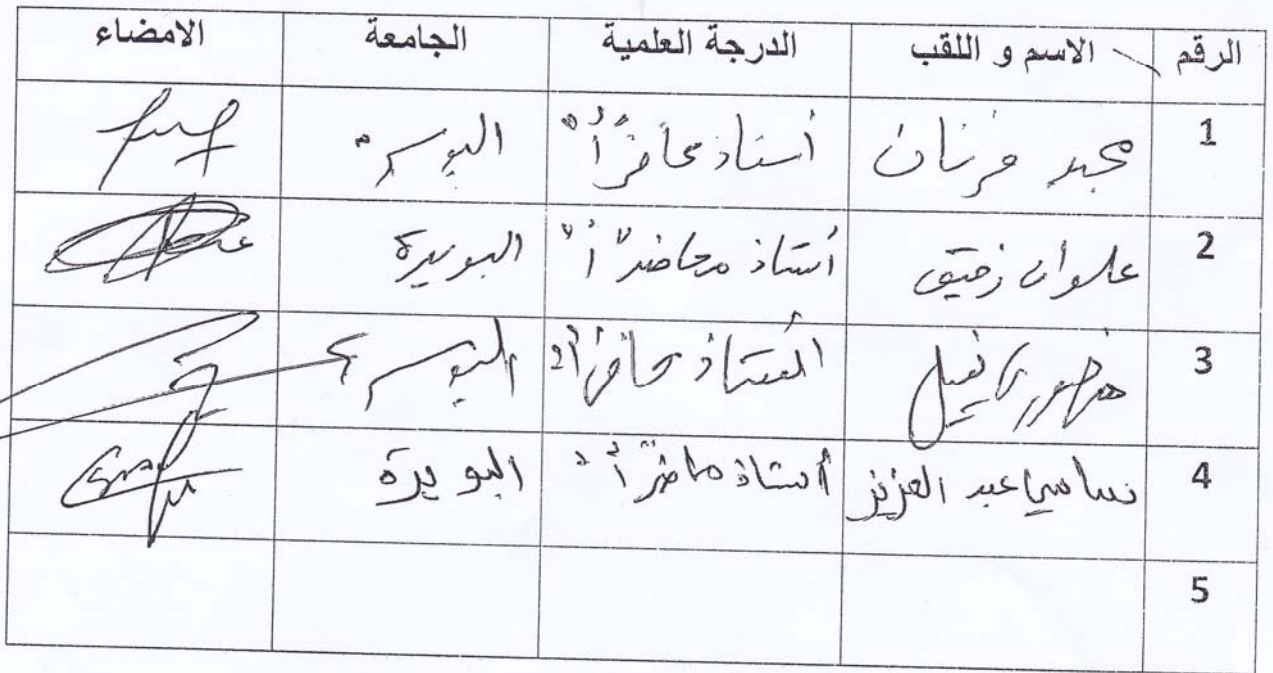 الرقم الاسم و اللقب الدرجة العلمية الجامعة الامضاء
1 مجيد فرنان أستاذ محاضر "أ" البويرة
2 علوان رفيق أستاذ محاضر "أ" البويرة
3 أستاذ محاضر "أ" البويرة
4 نساسي عبد العزيز أستاذ محاضر "أ" البويرة
5